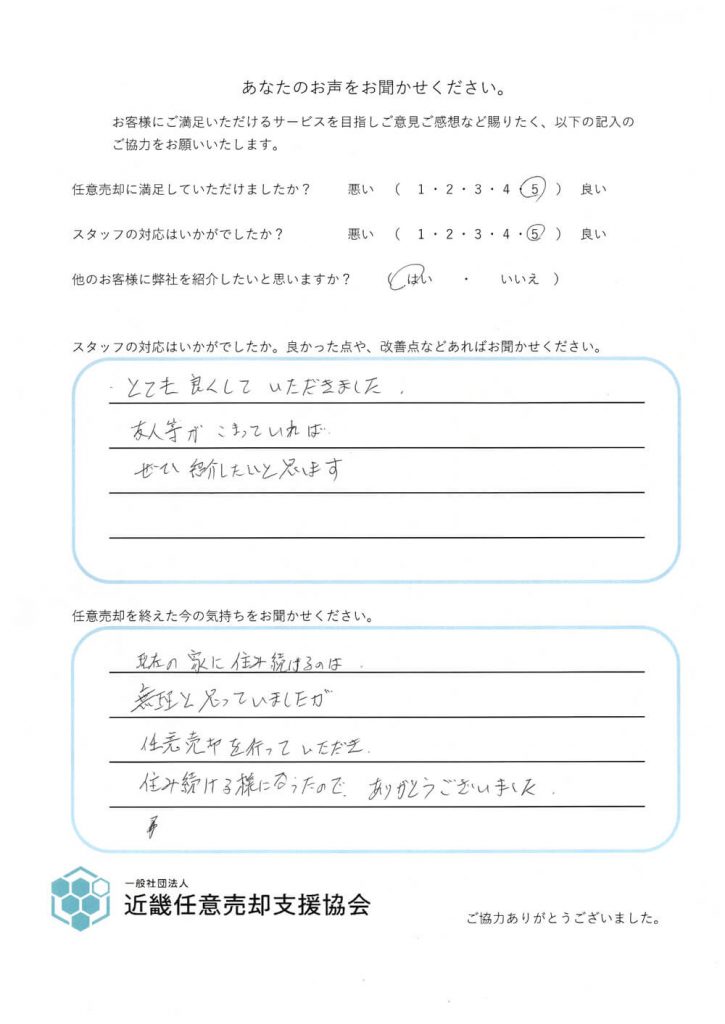 あなたのお声をお聞かせください。
お客様にご満足いただけるサービスを目指しご意見ご感想など賜りたく、以下の記入の
ご協力をお願いいたします。
任意売却に満足していただけましたか？ 悪い （ 1・2・3・4・5 ） 良い
スタッフの対応はいかがでしたか？ 悪い （ 1・2・3・4・5 ） 良い
他のお客様に弊社を紹介したいと思いますか？ （ はい ・ いいえ ）
スタッフの対応はいかがでしたか。良かった点や、改善点などあればお聞かせください。
とても良くしていただきました.
友人等がこまっていれば
ぜひ紹介したいと思います
任意売却を終えた今の気持ちをお聞かせください。
現在の家に住み続けるのは.
無理と思っていましたが
任意売却を行っていただき.
住み続ける様になったので、ありがとうございました.
一般社団法人
近畿任意売却支援協会
ご協力ありがとうございました。